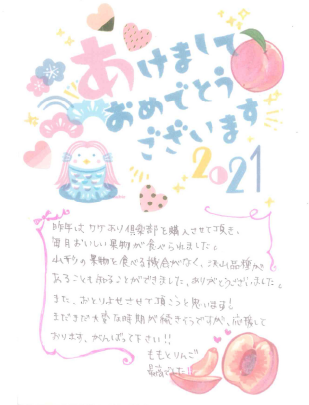 あけまして
おめでとう
ございます
2021
昨年はワケあり倶楽部を購入させて頂き、
毎月おいしい果物が食べられました。
の果物を食べる機会がなく、沢山品種が
あることも知ることができました。ありがとうございました。
また、おとりよせさせて頂こうと思います!
まだまだ大変な時期が続きそうですが、応援して
おります、がんばって下さい!!
ももとりんご
最高でした!!